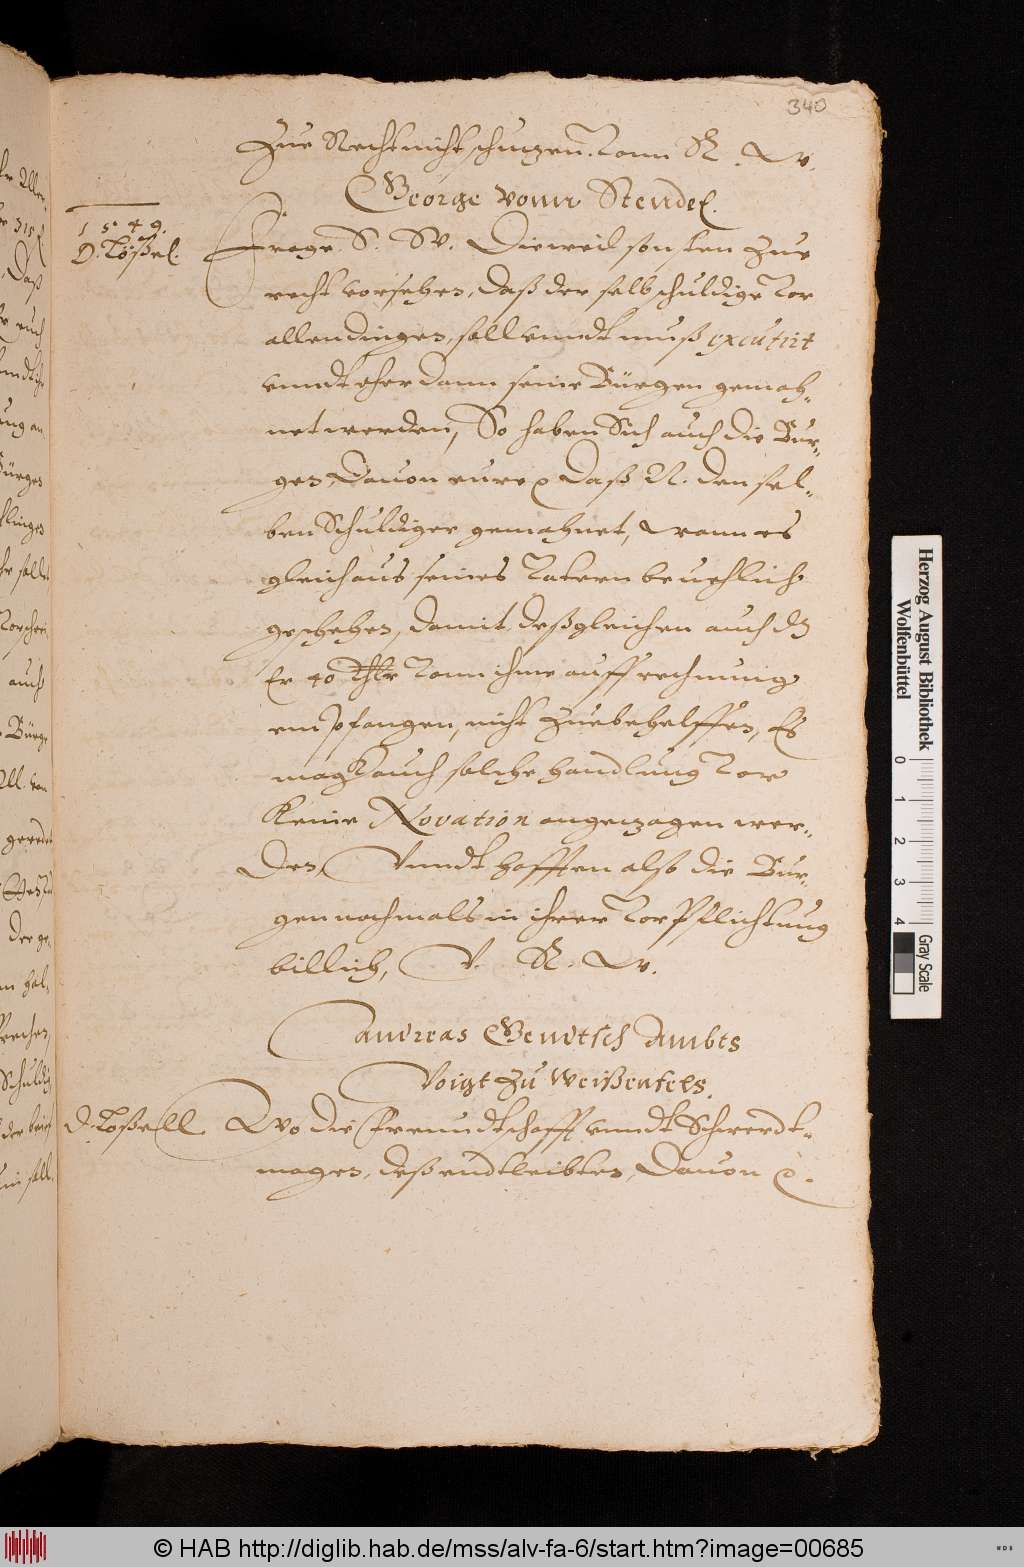 340
Zue Recht nicht schuzen. Vonn R. W.
George vonn Stendel.
1549.
D. Loßel.
Frage S. W. Dieweil sonsten Zue
recht vorsehen, daß der selbschuldige vor
allen dingen, soll vnndt muß excutirt
vnndt eher dann seine Bürgen gemah-
net werden, So haben Sich auch die Bur-
gen, Dauon eure Daß N. den sel-
ben Schuldiger gemahnet, wann es
gleich aus seines Vatern beuehlich
geschehen, damit deßgleichen auch dz
Er 40 thlr Vonn ihme auff rechnung
empfangen, nicht Zuebehelffen, Es
magk auch solche handlung Vor
Keine Novation angezogen wer-
den, Vnndt hafften also die Bur-
gen nochmals in ihrer Vorpflichtung
billich, V. R. W.
Andreas Gendtsch Ambts
Voigt Zu Weißenfels.
D. Loßell. Wo die Freundtschafft vnndt Schwerdt-
magen, deß endtleibten, Dauon
Herzog August Bibliothek
Wolfenbüttel
0 1 2 3 4
Gray Scale
© HAB http://diglib.hab.de/mss/alv-fa-6/start.htm?image=00685